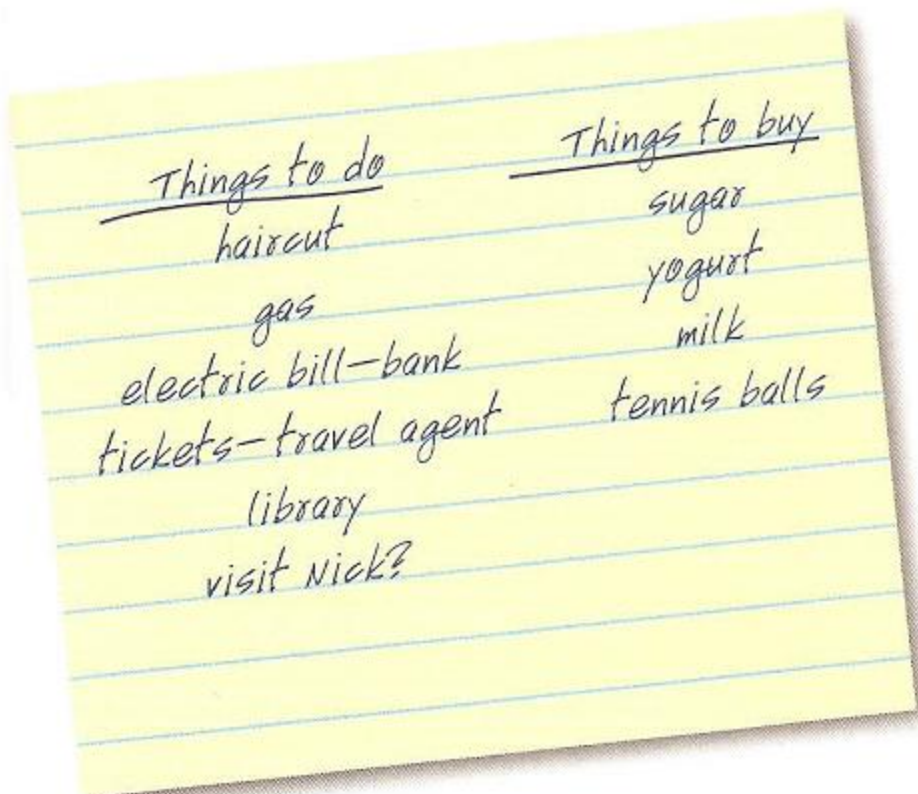 Things to do
haircut
gas
electric bill–bank
tickets–travel agent
library
visit Nick?
Things to buy
sugar
yogurt
milk
tennis balls